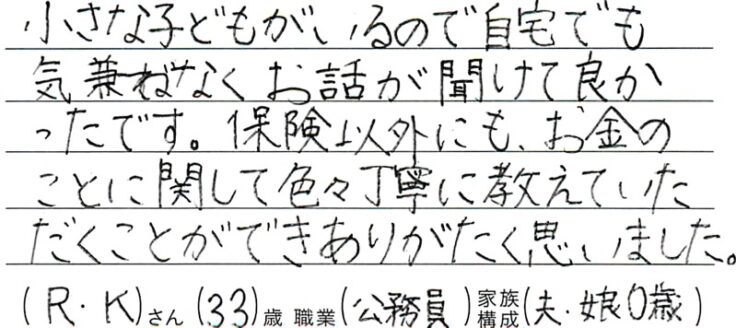 小さな子どもがいるので自宅でも
気兼ねなくお話が聞けて良か
ったです。保険以外にも、お金の
ことに関して色々丁寧に教えていた
だくことができありがたく思いました。
(R・K)さん(33)歳 職業(公務員)家族構成(夫・娘0歳)